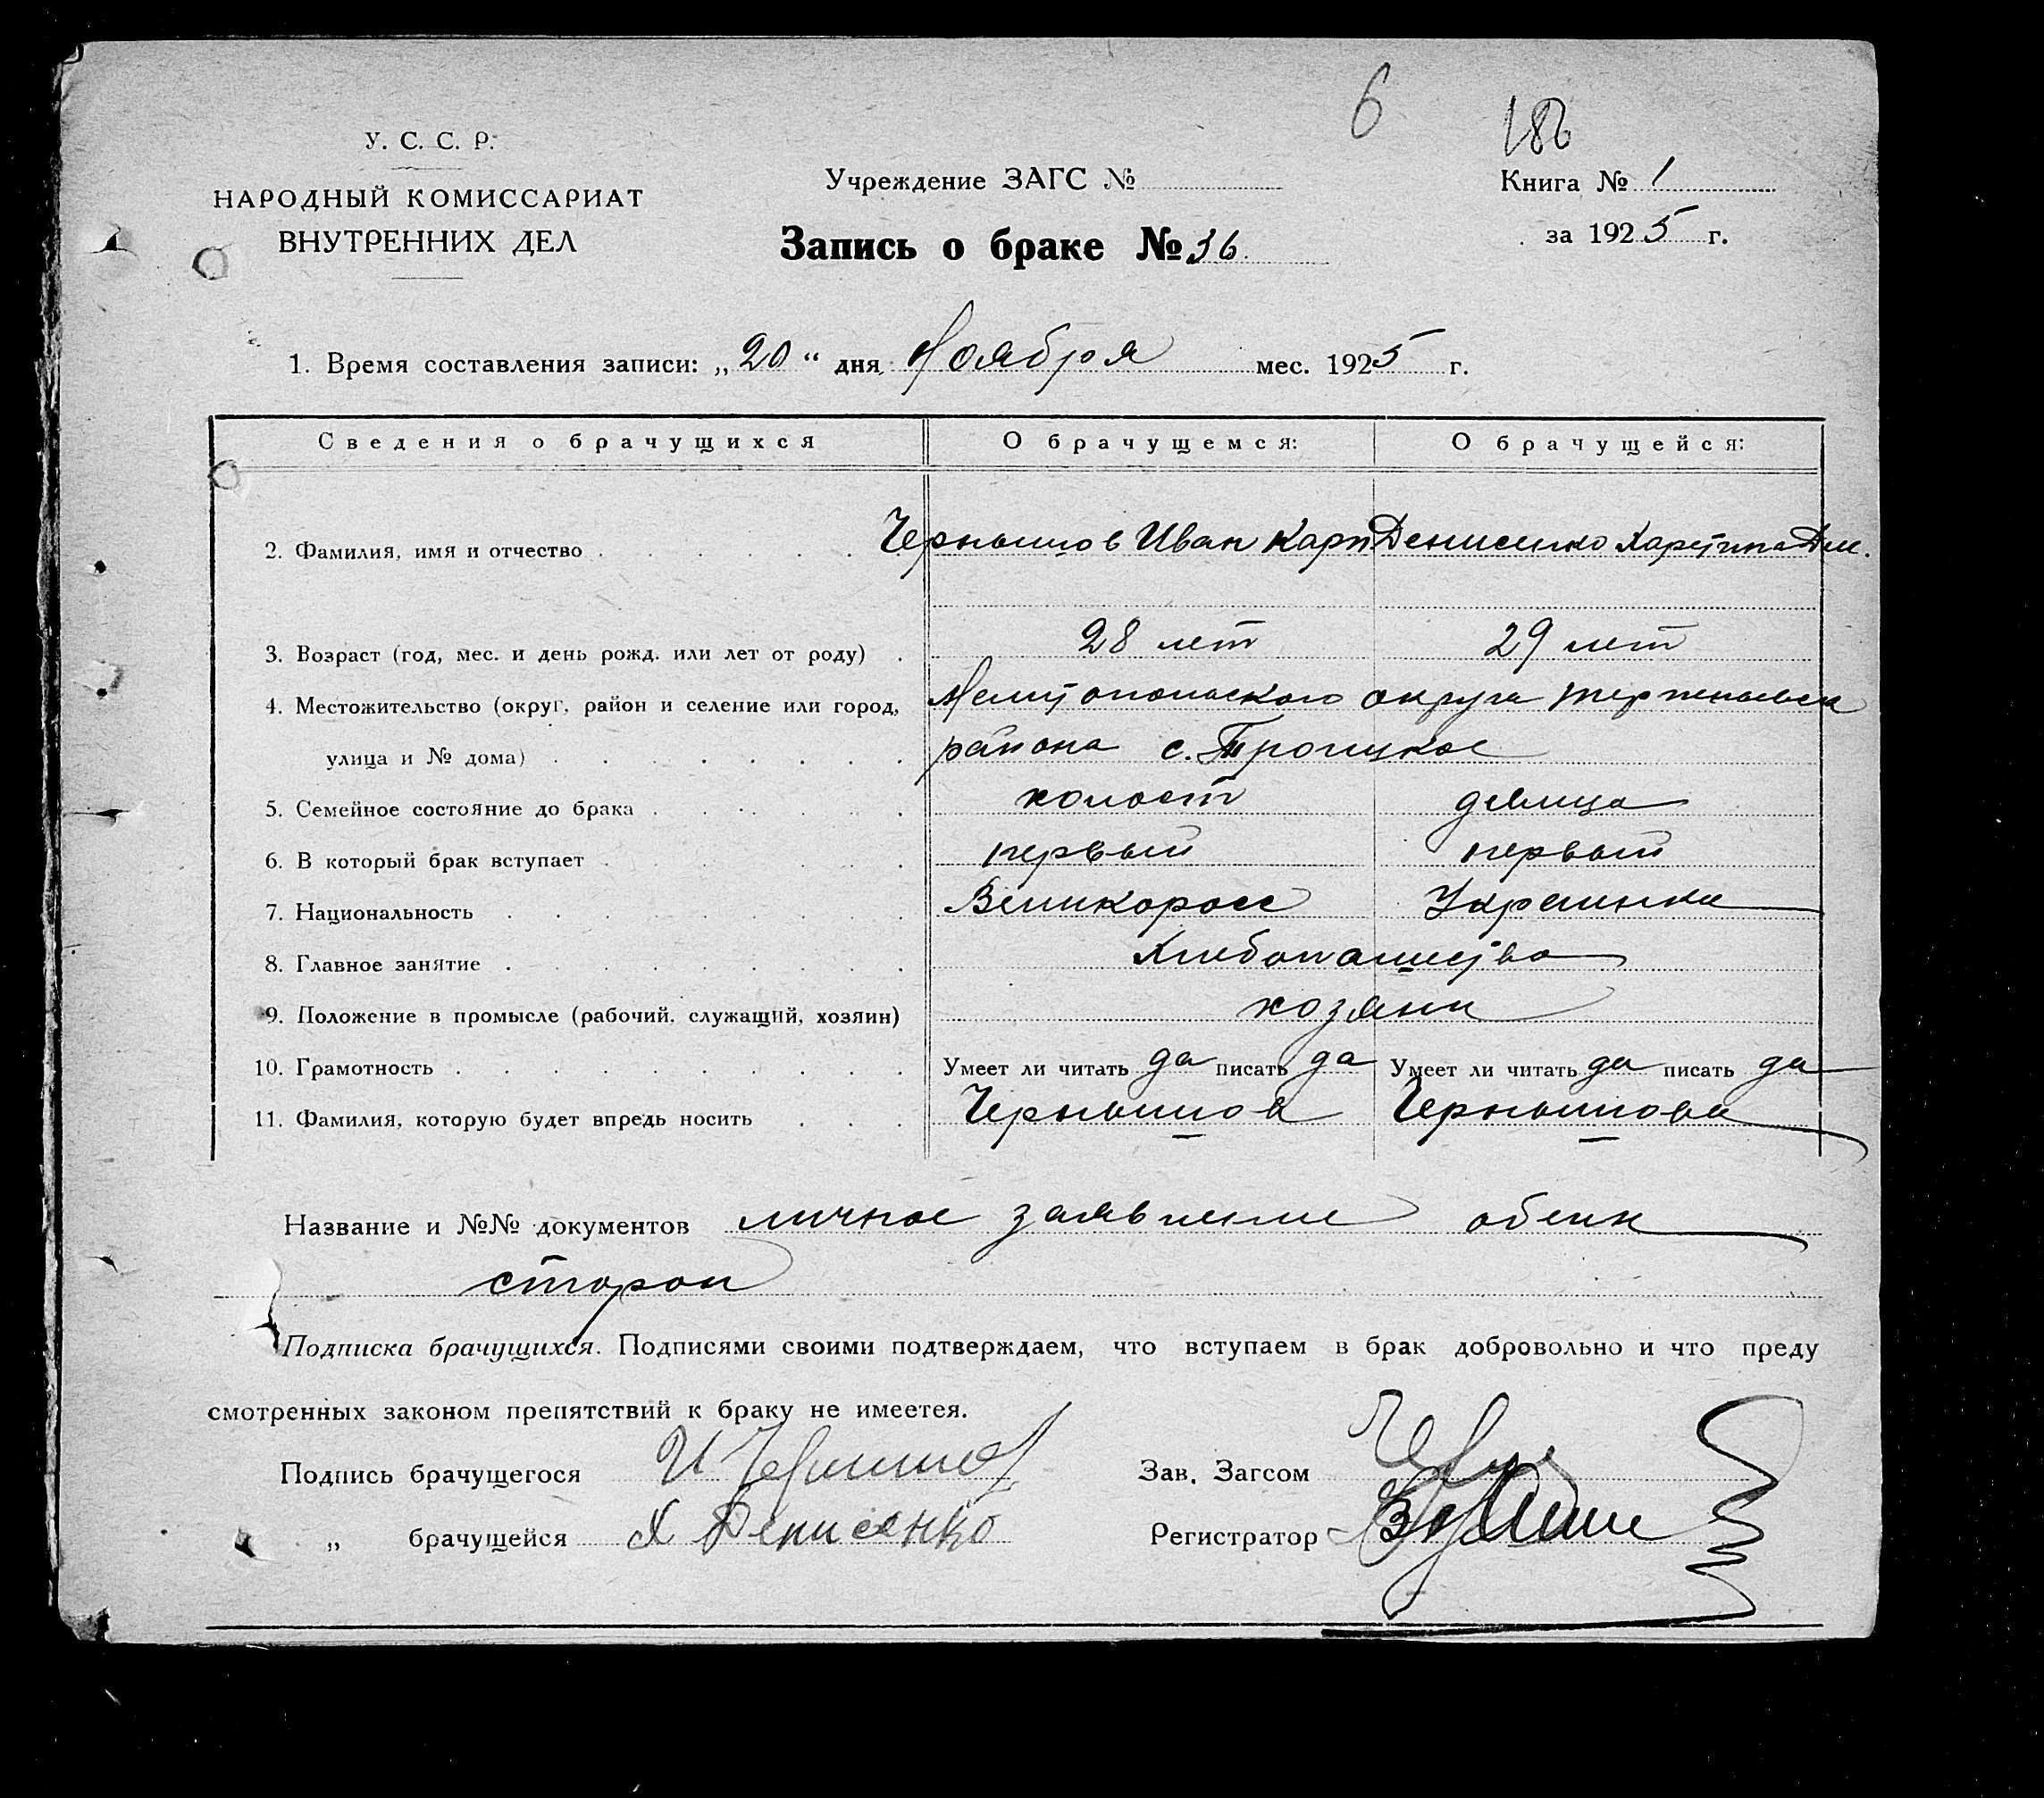 6
186
У. С. С. Р.
НАРОДНЫЙ КОМИССАРИАТ
ВНУТРЕННИХ ДЕЛ
Учреждение ЗАГС №
Запись о браке № 36
Книга № 1
за 1925 г.
1. Время составления записи: „20“ дня Ноября мес. 1925 г.
Сведения о брачущихся О брачущемся: О брачущейся:
2. Фамилия, имя и отчество Чернышов Иван Карп Денисенко Харитина Дем.
3. Возраст (год, мес. и день рожд. или лет от роду) 28 лет 29 лет
4. Местожительство (округ, район и селение или город, Мелитопольского округа
улица и № дома) района с. Троицкое
5. Семейное состояние до брака холост девица
6. В который брак вступает первый первый
7. Национальность Великоросс Украинка
8. Главное занятие Хлебопашество
9. Положение в промысле (рабочий, служащий, хозяин) хозяин
10. Грамотность Умеет ли читать да писать да Умеет ли читать да писать да
11. Фамилия, которую будет впредь носить Чернышов Чернышова
Название и №№ документов личное заявление обеих
сторон
Подписка брачущихся. Подписями своими подтверждаем, что вступаем в брак добровольно и что преду
смотренных законом препятствий к браку не имеетея.
Подпись брачущегося И Чернышов Зав. Загсом
„ брачущейся Х Денисенко Регистратор